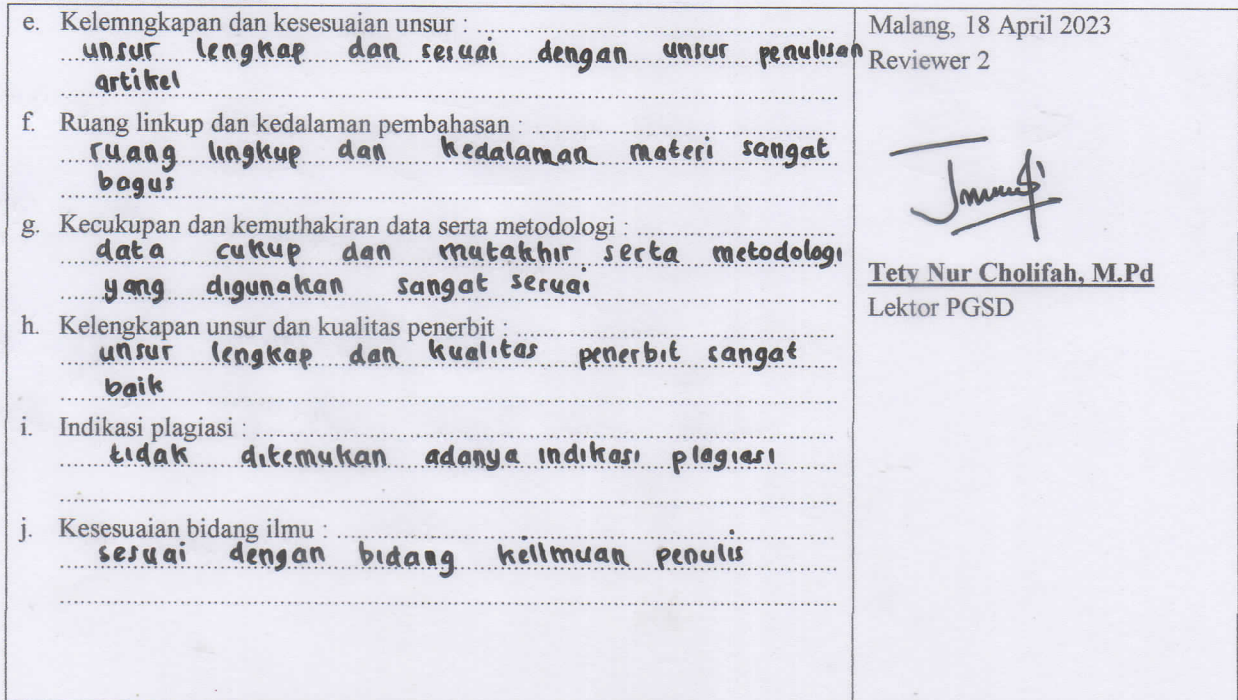 e. Kelemngkapan dan kesesuaian unsur :
unsur lengkap dan sesuai dengan unsur penulisan
artikel
f. Ruang linkup dan kedalaman pembahasan :
ruang lingkup dan kedalaman materi sangat
bagus
g. Kecukupan dan kemuthakiran data serta metodologi :
data cukup dan mutakhir serta metodologi
yang digunakan sangat sesuai
h. Kelengkapan unsur dan kualitas penerbit :
unsur lengkap dan kualitas penerbit sangat
baik
i. Indikasi plagiasi :
tidak ditemukan adanya indikasi plagiasi
j. Kesesuaian bidang ilmu :
sesuai dengan bidang keilmuan penulis
Malang, 18 April 2023
Reviewer 2
Tety Nur Cholifah, M.Pd
Lektor PGSD